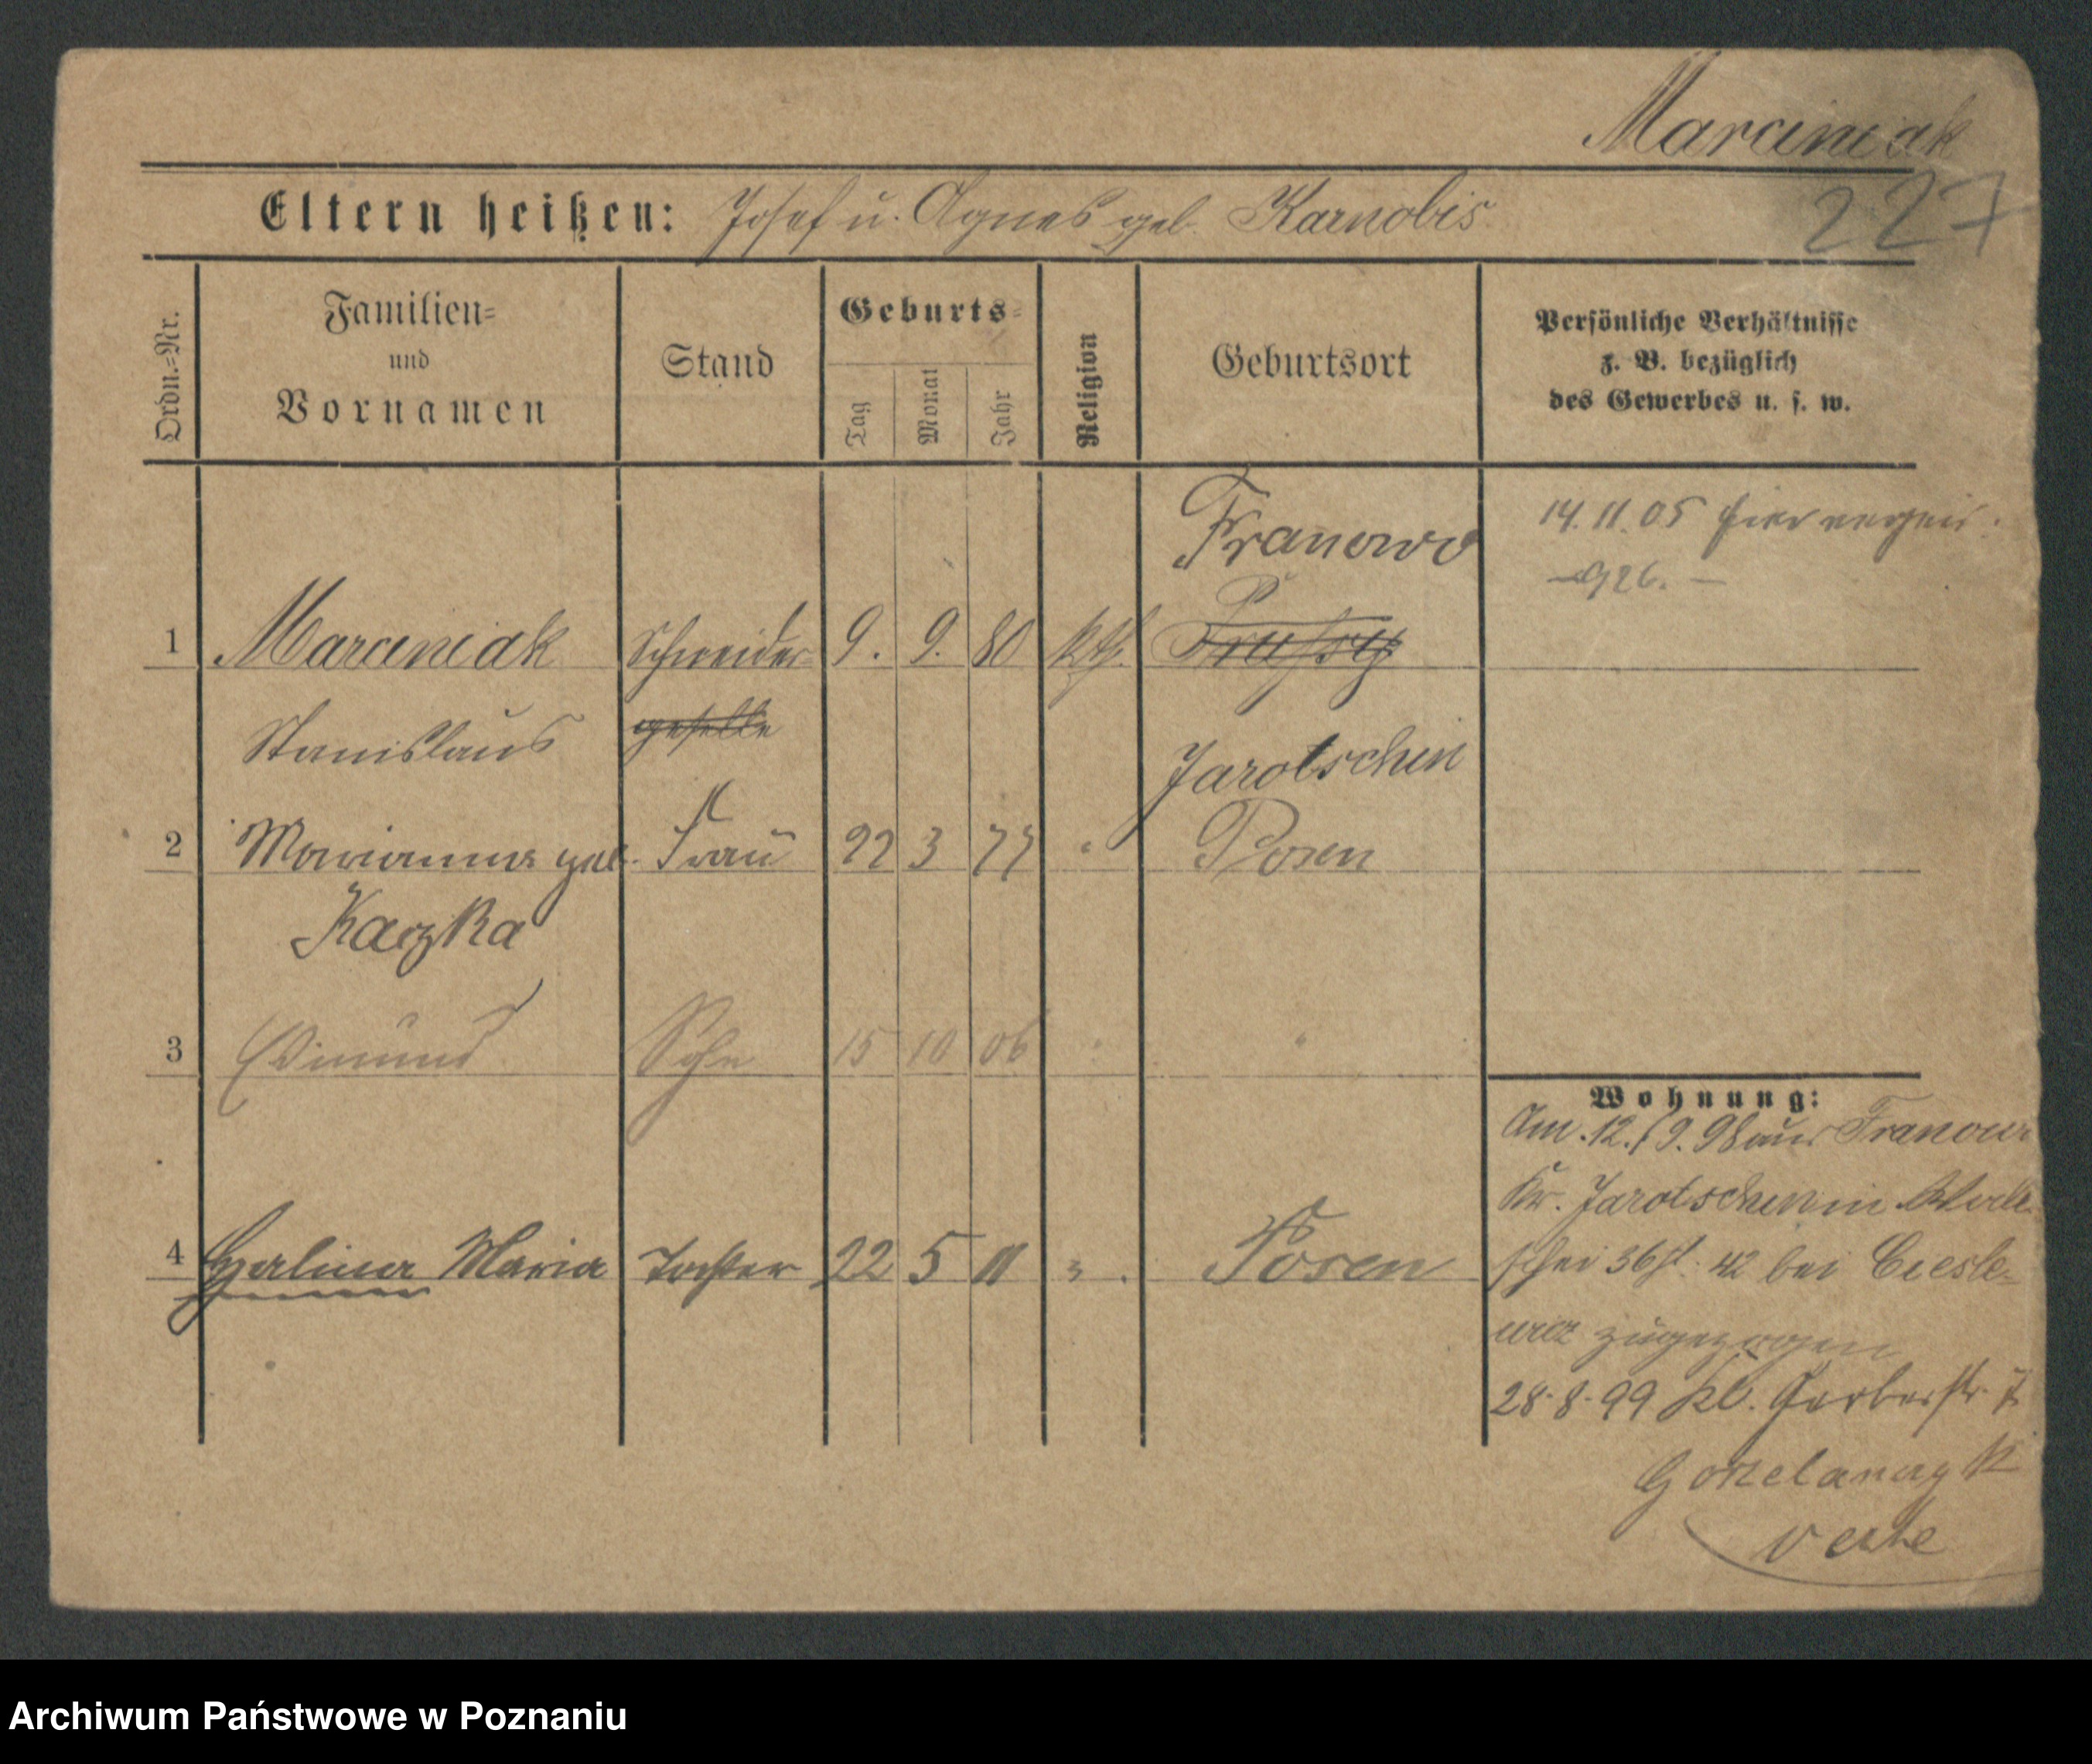 Marciniak
227
Eltern heißen: Josef u. Agnes geb. Karnobis
Ordn.-Nr.
Familien-
und
Vornamen
Stand
Geburts-
Tag
Monat
Jahr
Religion
Geburtsort
Persönliche Verhältnisse
z. B. bezüglich
des Gewerbes u. s. w.
14. 11. 05 hier
Franowo
1 Marciniak Schneider 9. 9. 80 kth.
Stanislaus geselle
Jarotschin
2 Marianna geb. Frau 22 3 77 " Posen
Kaczka
3 Edmund Sohn 15 10 06 " "
Wohnung:
Am 12./9. 98 aus
Kr. Jarotschin in
4 Halina Maria Tochter 22 5 11 " Posen
36 42 bei Ciesle-
zugezogen
28. 8. 99 Kl. Gerberstr. 7
verte
Archiwum Państwowe w Poznaniu